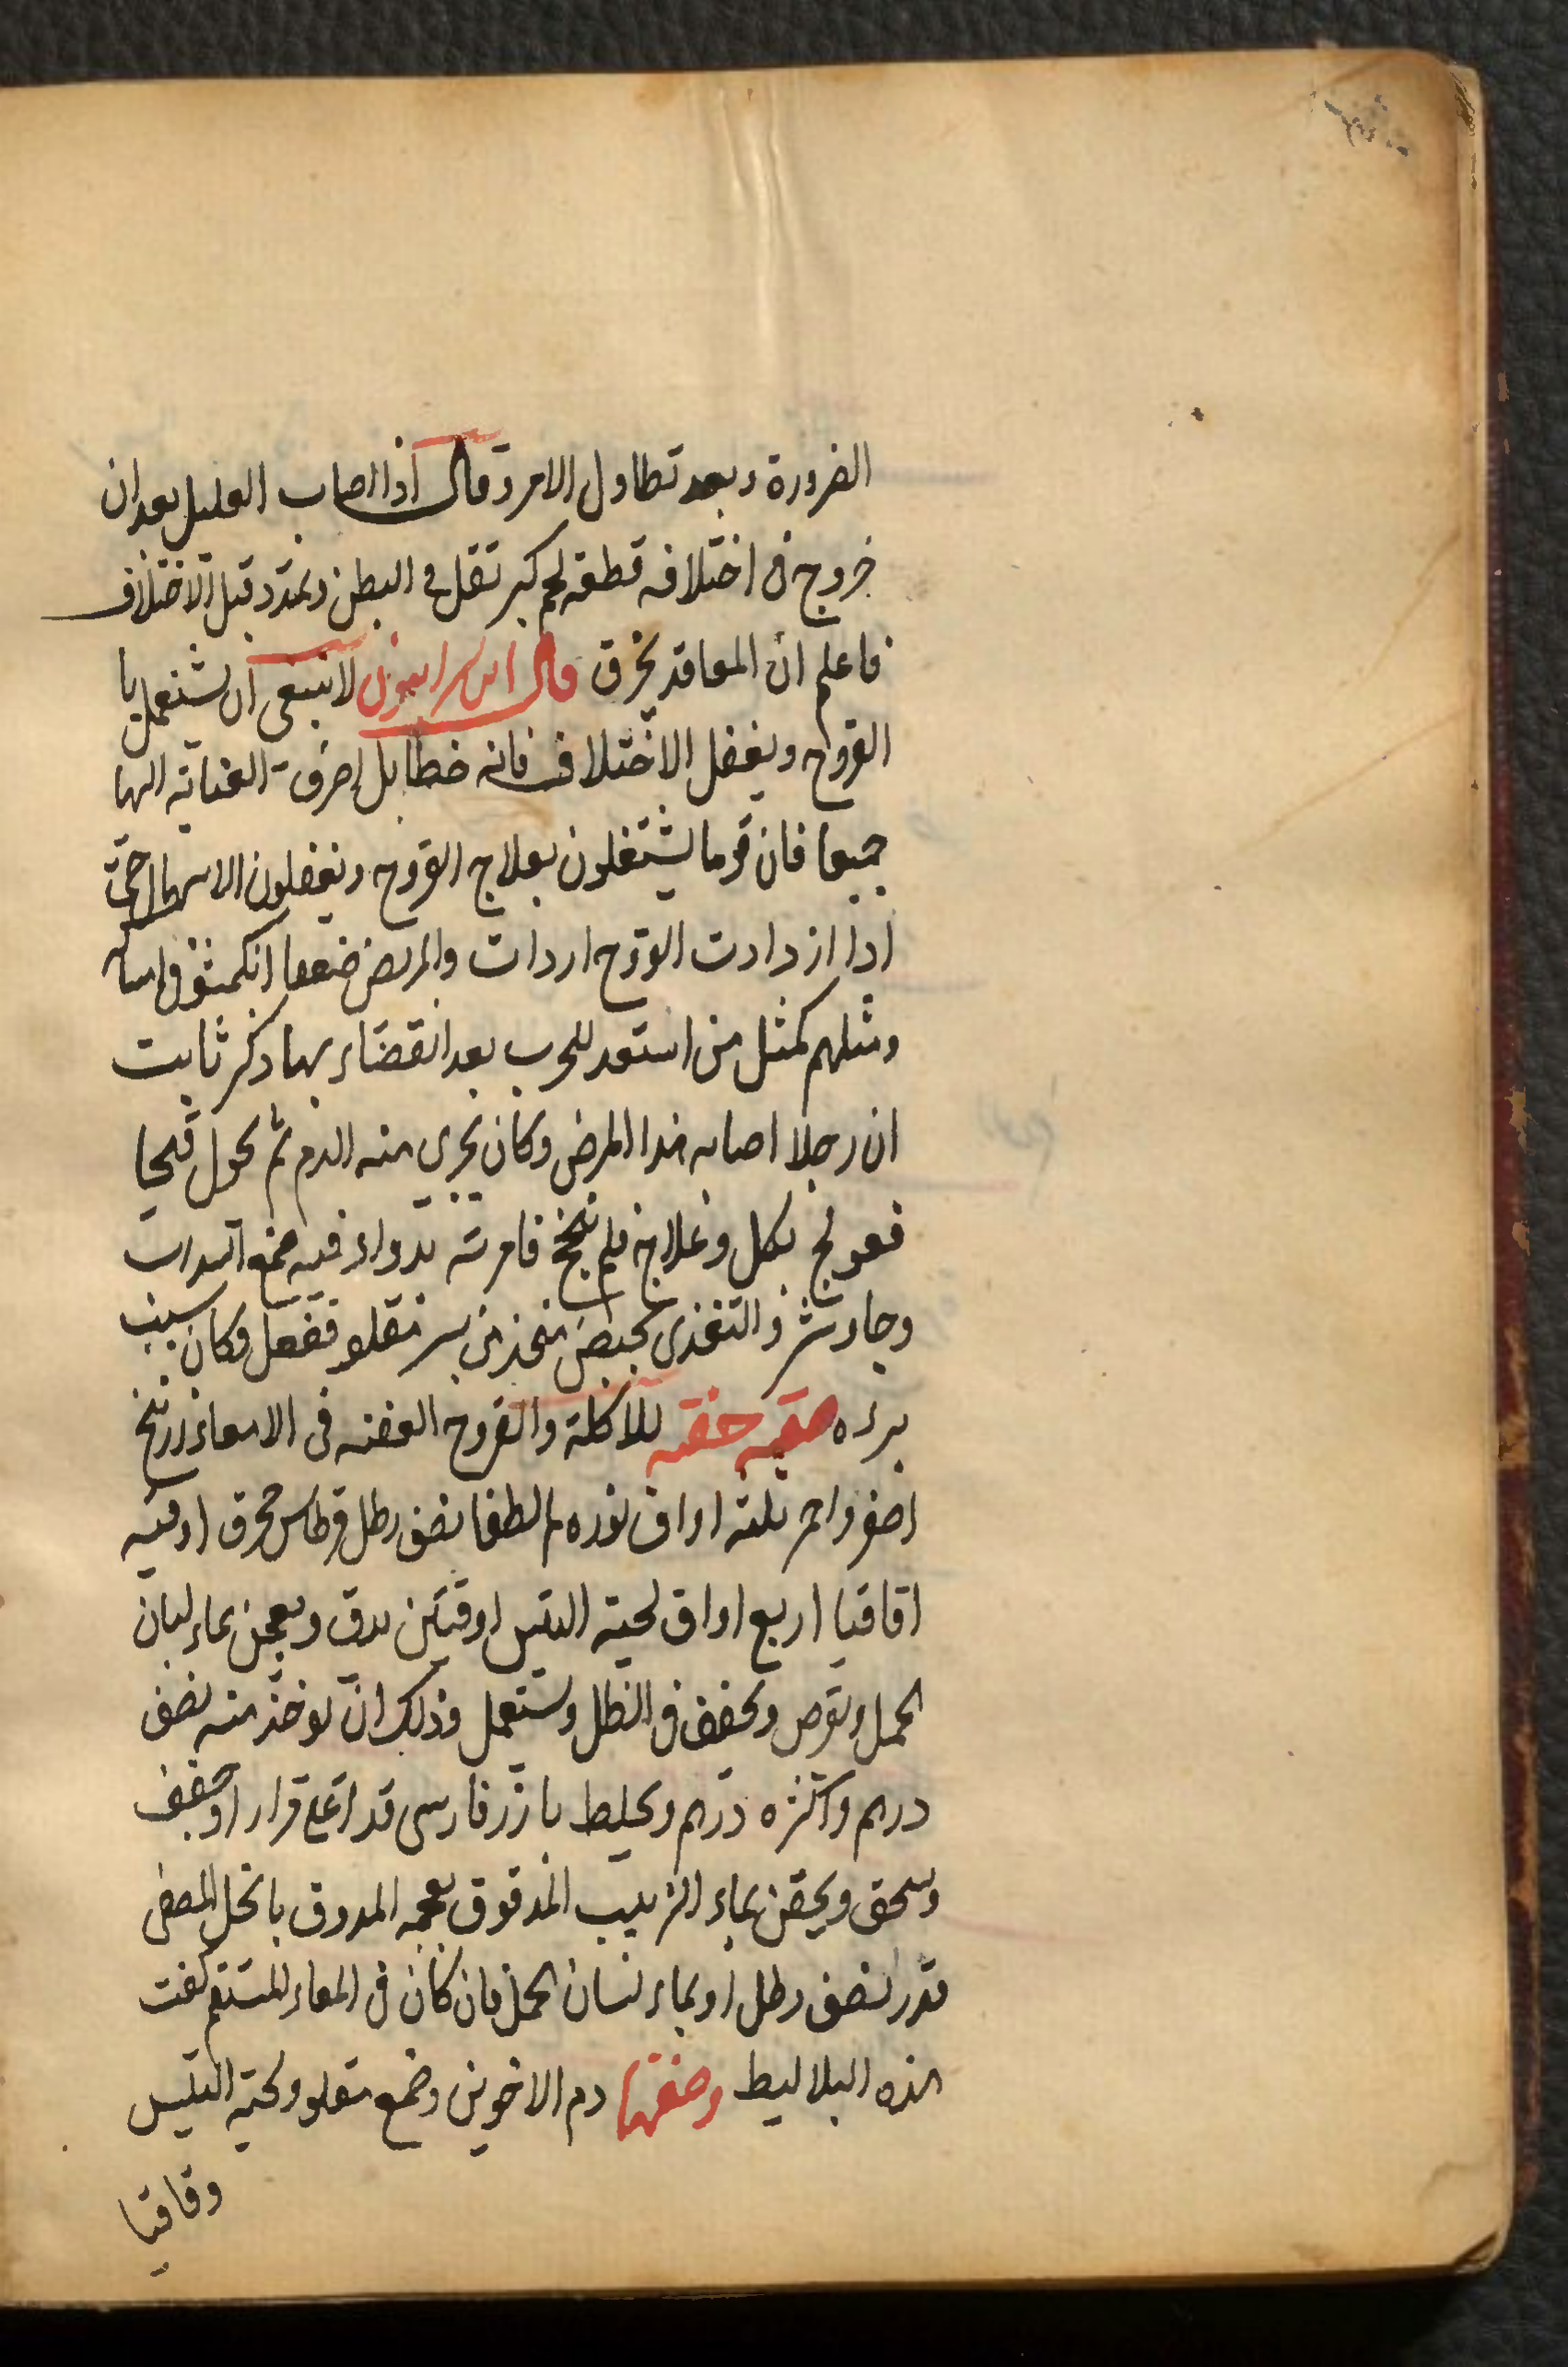 الضرورة وبعد تطاول الامر وقال اذا اصاب العليل بعد ان
خروج فى اختلافه قطعة لحم كبر ثقل فى البطن وتمدد قبل الاختلاف
فاعلم ان المعا قد يخرق قال ابن سرابيون لا ينبغى ان يشتغل با
القروح ويغفل الاختلاف فانه خطا بل اصرف العناية اليهما
جميعا فان قوما يشتغلون بعلاج القروح ويغفلون الاسهال حتى
اذا ازدادت القروح اردات والمريض ضعفا انكمشو فى
ومثلهم كمثل من استعد للحرب بعد انقضاءها وذكر ثابت
ان رجلا اصابه هذا المرض وكان يجرى منه الدم ثم تحول قيحا
فعولج بكل وعلاج فلم ينجح فامرته بدواء فيه صمغ السداب
وجاوشير والتغذى بخبيص متخذ من بسر مقلو ففعل فكان سبب
برءه صفة حقنه للاكلة والقروح العفنه فى الامعاء زرنيخ
اصفر واحمر ثلثه اواق نوره لم تطفا نصف رطل قرطاس محرق اوقيه
اقاقيا اربع اواق لحية التيس اوقيتين يدق ويعجن بماء لسان
الحمل ويقرص ويجفف فى الظل ويستعمل وذلك ان يوخذ منه نصف
درهم واكثره درهم ويخلط بارز فارسى قد اغلى مرارا وجفف
وسحق ويحقن بماء الزبيب المدقوق بعجمه المدوف بالخل المصفى
قدر نصف رطل او بماء لسان الحمل فان كان فى المعاء المستقيم كفت
هذه البلاليط وصفتها دم الاخوين وصمغ مقلو ولحية التيس
وقاقيا